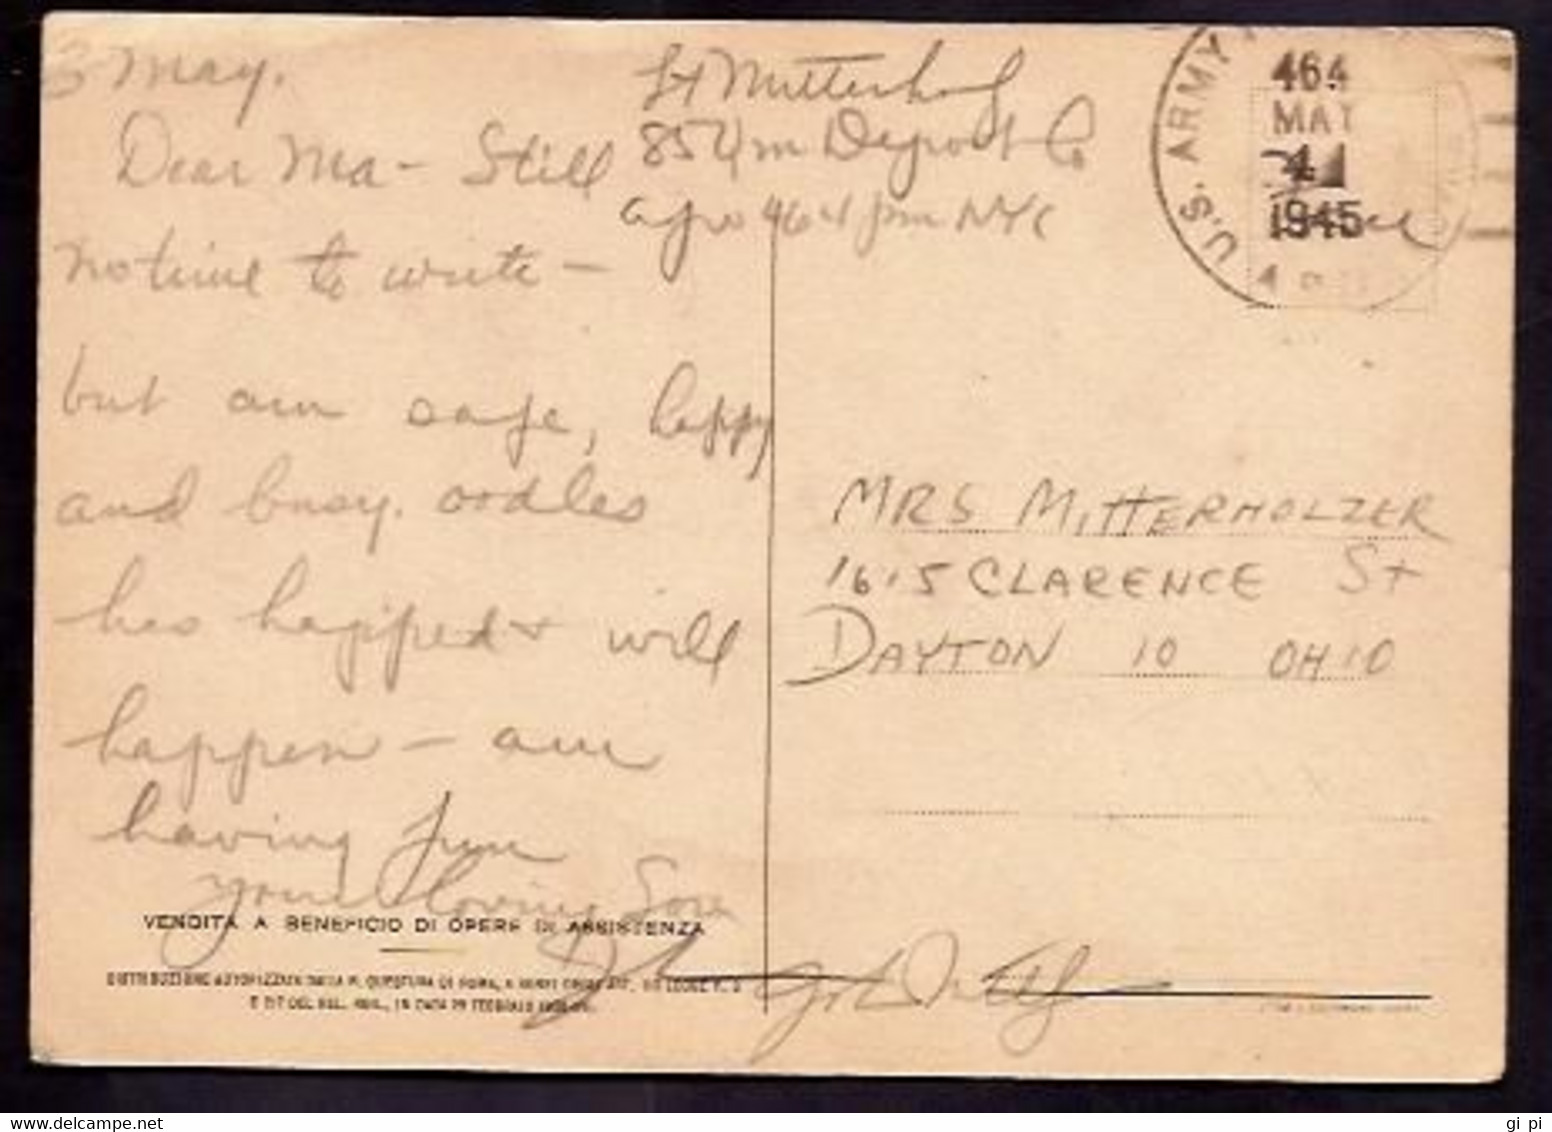 3 May.
Dear Ma - Still
no time to write -
but am safe, happy
and busy. oodles
has happed + will
happen - am
having fun
your loving Son
Lt Mitterhol
Depot Co
apo 464 pm NYC
U.S. ARMY
464
MAY
4
1945
MRS MITTERHOLZER
1615 CLARENCE St
DAYTON 10 OHIO
VENDITA A BENEFICIO DI OPERE DI ASSISTENZA
DISTRIBUZIONE AUTORIZZATA DALLA R. QUESTURA DI ROMA, A SENSI
gi pi